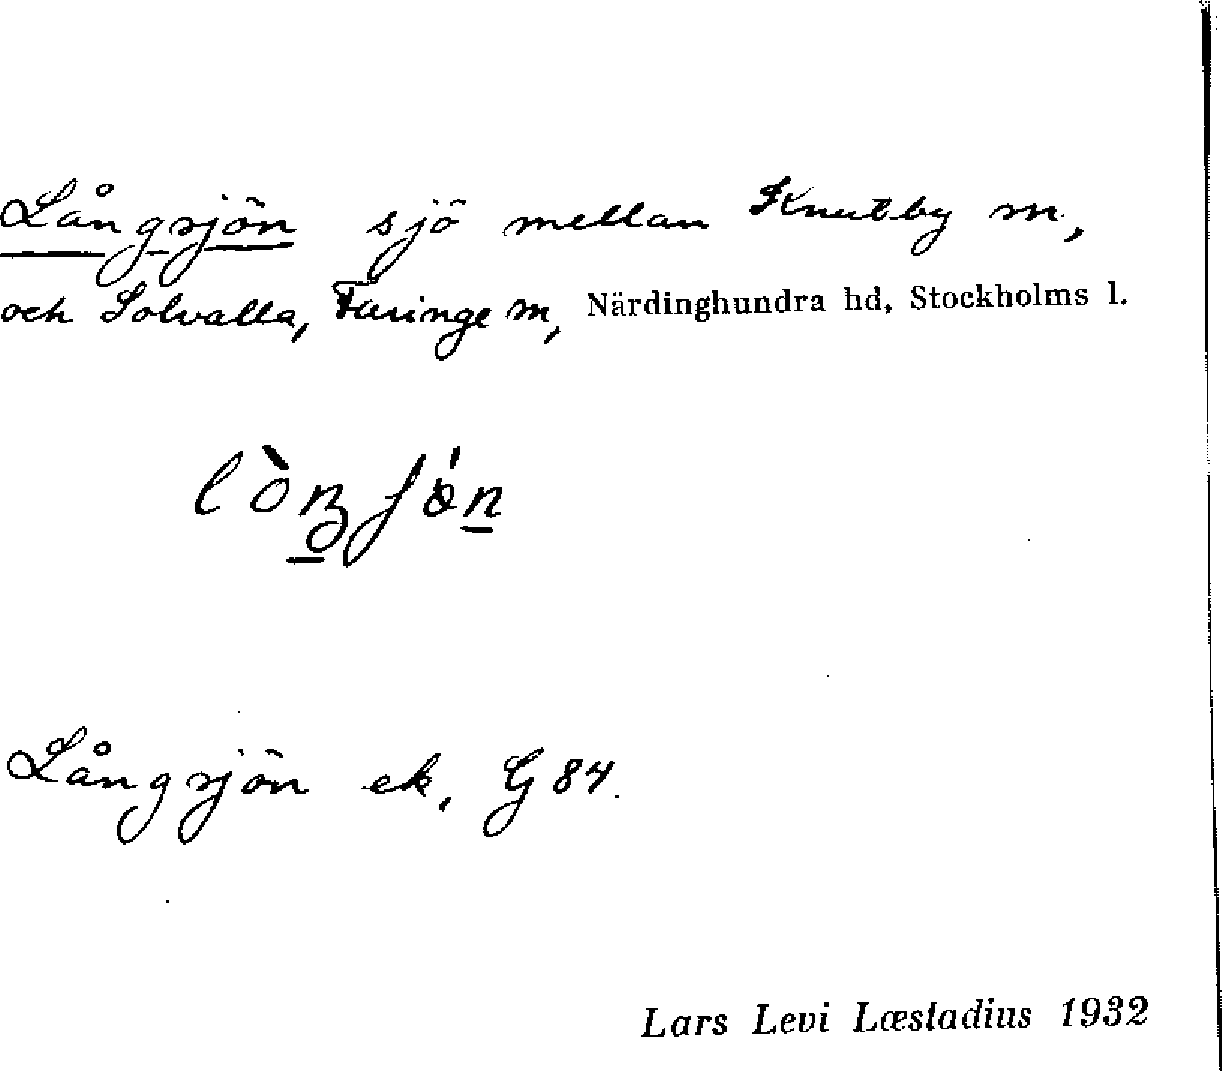 Långsjön sjö mellan Knutby m,
och Solvalla, Faringe m, Närdinghundra hd, Stockholms l.
Långsjön ek, G 84.
Lars Levi Læstadius 1932